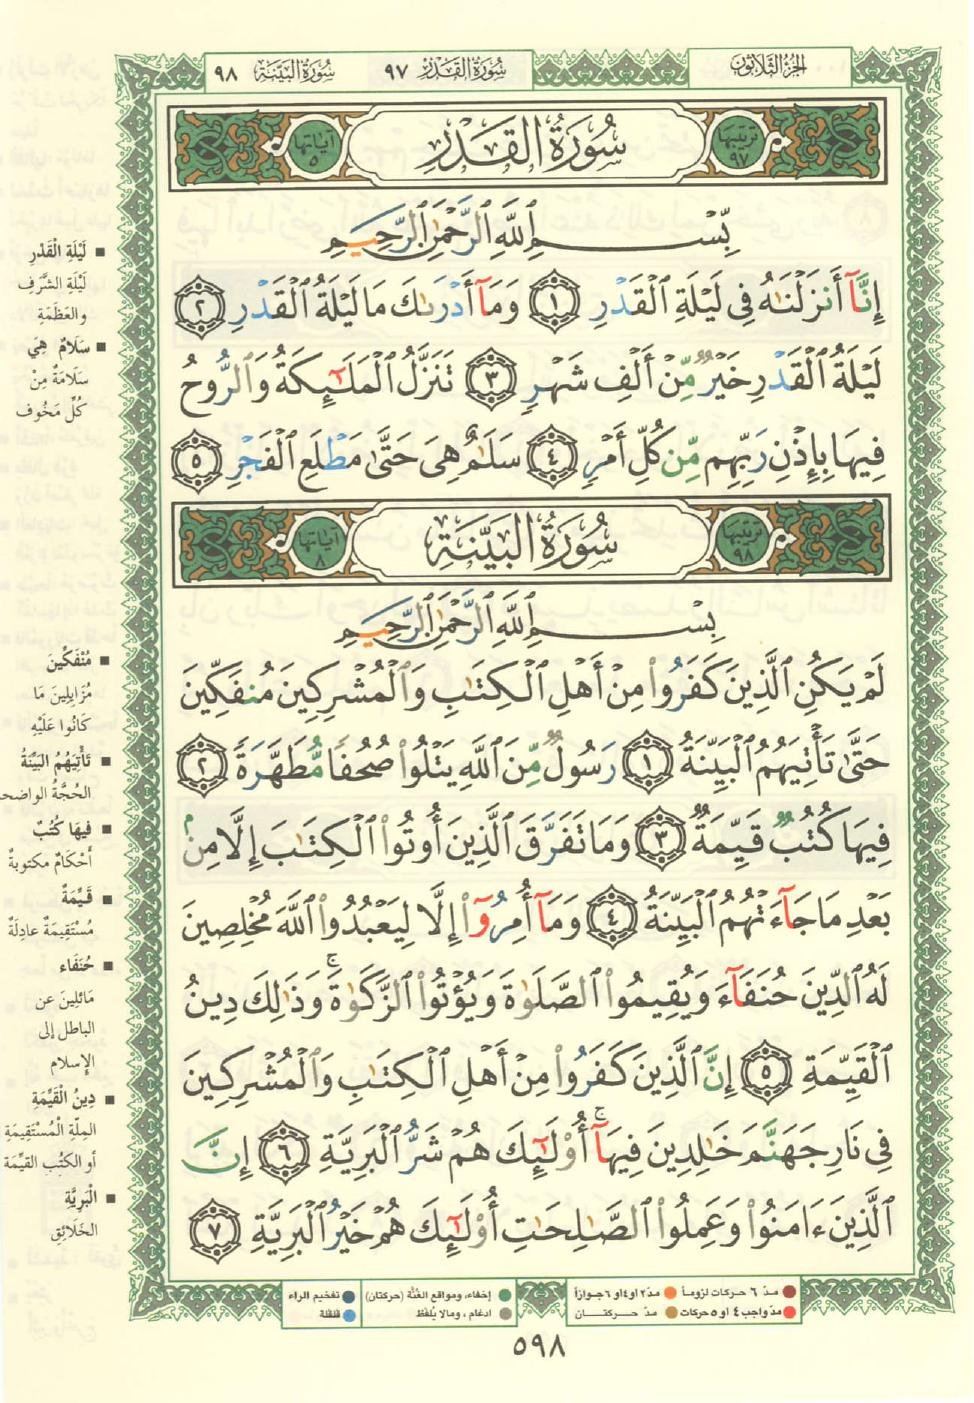 الجزء الثلاثون
سورة القدر ٩٧
سورة البينة ٩٨
ترتيبها ٩٧
سُورَةُ القَدْرِ
آياتها ٥
بِسْمِ ٱللَّهِ ٱلرَّحْمَٰنِ ٱلرَّحِيمِ
إِنَّآ أَنزَلْنَٰهُ فِى لَيْلَةِ ٱلْقَدْرِ ١ وَمَآ أَدْرَىٰكَ مَا لَيْلَةُ ٱلْقَدْرِ ٢
لَيْلَةُ ٱلْقَدْرِ خَيْرٌ مِّنْ أَلْفِ شَهْرٍ ٣ تَنَزَّلُ ٱلْمَلَٰٓئِكَةُ وَٱلرُّوحُ
فِيهَا بِإِذْنِ رَبِّهِم مِّن كُلِّ أَمْرٍ ٤ سَلَٰمٌ هِىَ حَتَّىٰ مَطْلَعِ ٱلْفَجْرِ ٥
ترتيبها ٩٨
سُورَةُ البَيِّنَةِ
آياتها ٨
بِسْمِ ٱللَّهِ ٱلرَّحْمَٰنِ ٱلرَّحِيمِ
لَمْ يَكُنِ ٱلَّذِينَ كَفَرُوا۟ مِنْ أَهْلِ ٱلْكِتَٰبِ وَٱلْمُشْرِكِينَ مُنفَكِّينَ
حَتَّىٰ تَأْتِيَهُمُ ٱلْبَيِّنَةُ ١ رَسُولٌ مِّنَ ٱللَّهِ يَتْلُوا۟ صُحُفًا مُّطَهَّرَةً ٢
فِيهَا كُتُبٌ قَيِّمَةٌ ٣ وَمَا تَفَرَّقَ ٱلَّذِينَ أُوتُوا۟ ٱلْكِتَٰبَ إِلَّا مِنۢ
بَعْدِ مَا جَآءَتْهُمُ ٱلْبَيِّنَةُ ٤ وَمَآ أُمِرُوٓا۟ إِلَّا لِيَعْبُدُوا۟ ٱللَّهَ مُخْلِصِينَ
لَهُ ٱلدِّينَ حُنَفَآءَ وَيُقِيمُوا۟ ٱلصَّلَوٰةَ وَيُؤْتُوا۟ ٱلزَّكَوٰةَ ۚ وَذَٰلِكَ دِينُ
ٱلْقَيِّمَةِ ٥ إِنَّ ٱلَّذِينَ كَفَرُوا۟ مِنْ أَهْلِ ٱلْكِتَٰبِ وَٱلْمُشْرِكِينَ
فِى نَارِ جَهَنَّمَ خَٰلِدِينَ فِيهَآ ۚ أُو۟لَٰٓئِكَ هُمْ شَرُّ ٱلْبَرِيَّةِ ٦ إِنَّ
ٱلَّذِينَ ءَامَنُوا۟ وَعَمِلُوا۟ ٱلصَّٰلِحَٰتِ أُو۟لَٰٓئِكَ هُمْ خَيْرُ ٱلْبَرِيَّةِ ٧
■ لَيْلَةِ الْقَدْرِ
لَيْلَةِ الشَّرَفِ
والعَظَمَةِ
■ سَلَامٌ هِيَ
سَلَامَةٌ مِنْ
كُلِّ مَخُوف
■ مُنْفَكِّينَ
مُزَايِلِينَ مَا
كَانُوا عَلَيْهِ
■ تَأْتِيَهُمُ البَيِّنَةُ
الحُجَّةُ الواضحة
■ فِيهَا كُتُبٌ
أَحْكَامٌ مكتوبةٌ
■ قَيِّمَةٌ
مُسْتَقِيمَةٌ عادِلَةٌ
■ حُنَفَاءَ
مَائلِينَ عن
الباطل إلى
الإسلام
■ دِينُ الْقَيِّمَةِ
المِلَّةِ الْمُسْتَقِيمَةِ
أو الكتُبِ القيِّمَة
■ الْبَرِيَّةِ
الخَلَائِقِ
مدّ ٦ حركات لزوماً
مدّ ٢ او ٤ او ٦ جوازاً
إخفاء، ومواقع الغُنَّة (حركتان)
تفخيم الراء
مدّ واجب ٤ او ٥ حركات
مدّ حركتان
ادغام، وما لا يُلفَظ
قلقلة
٥٩٨